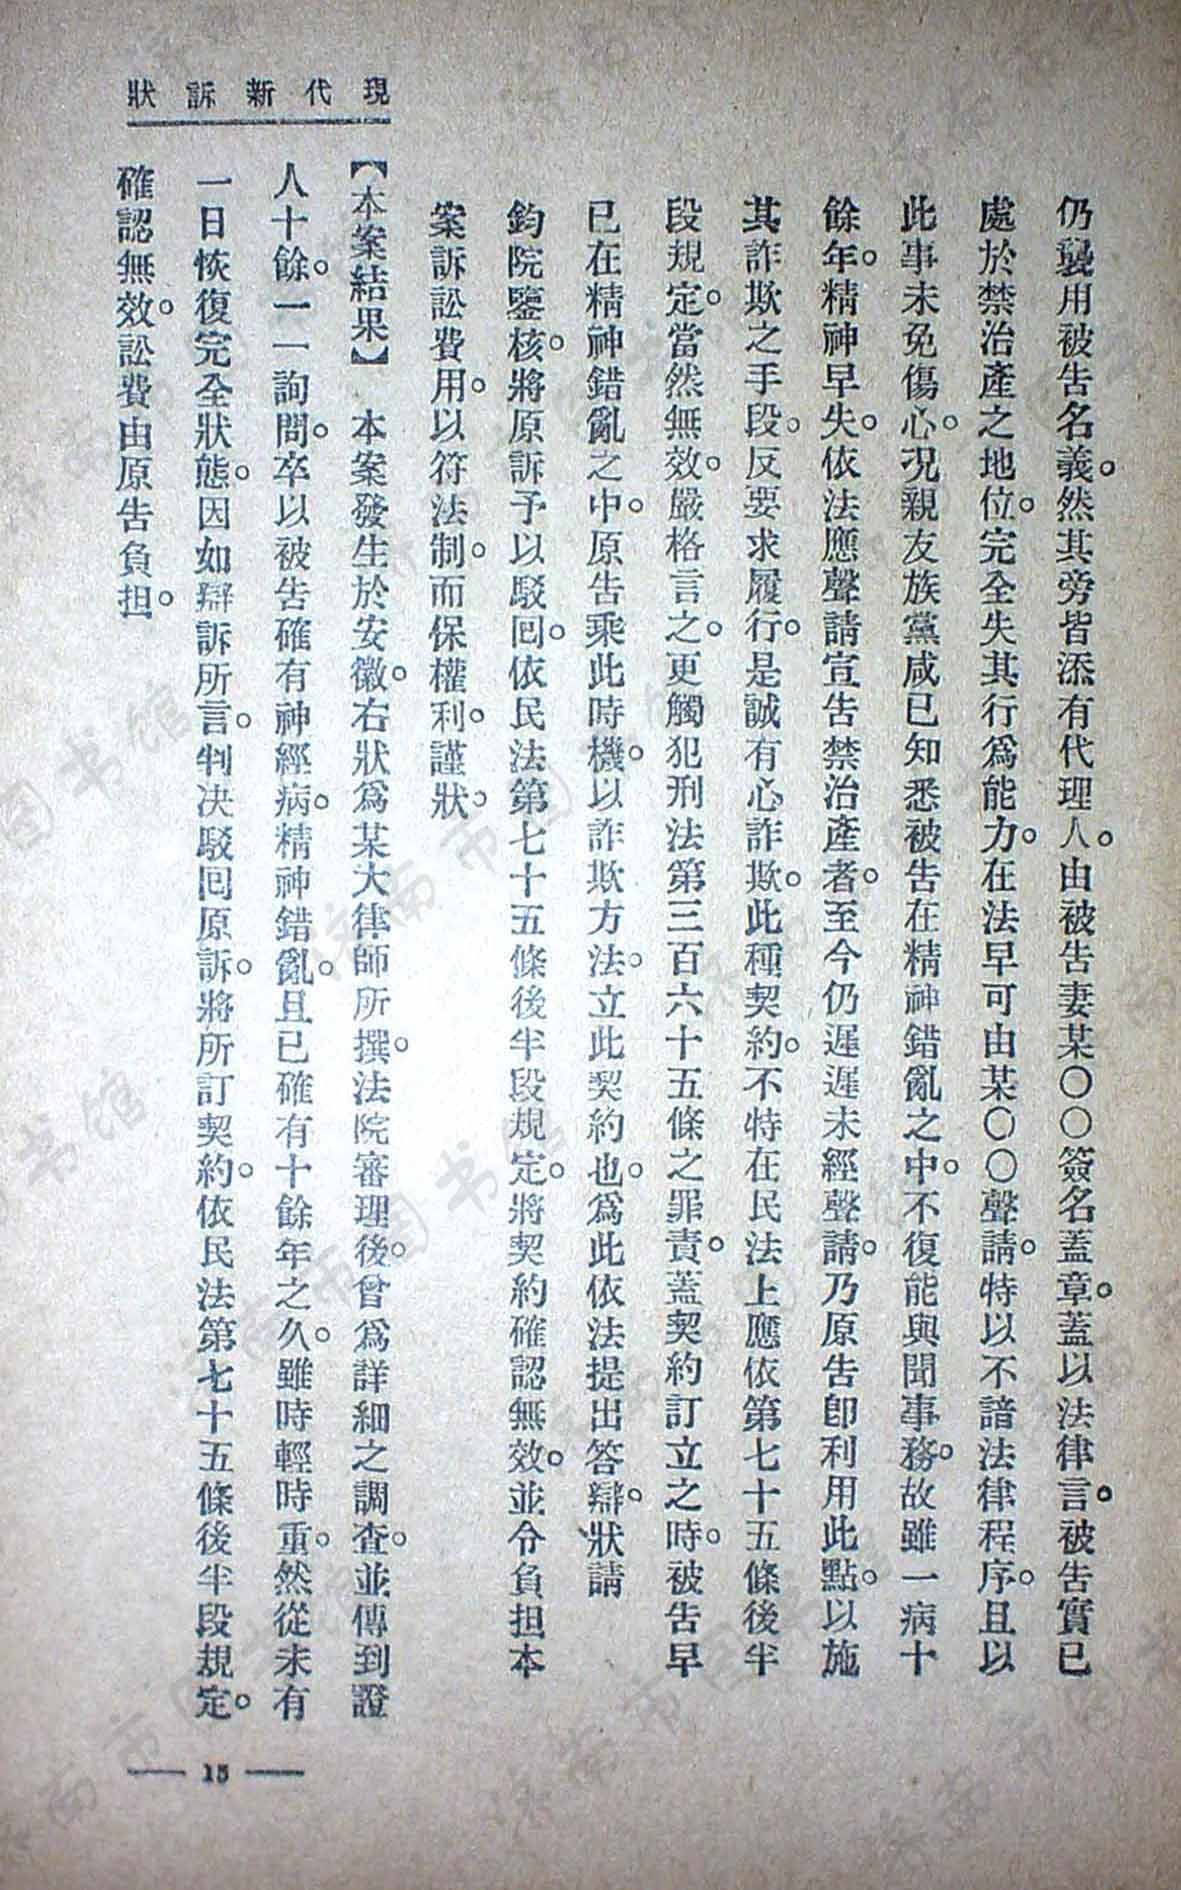 現代新訴狀
仍襲用被告名義。然其旁皆添有代理人。由被告妻某〇〇簽名蓋章。蓋以法律言。被告實已
處於禁治產之地位。完全失其行爲能力。在法早可由某〇〇聲請。特以不諳法律程序。且以
此事未免傷心。况親友族黨咸已知悉被告在精神錯亂之中。不復能與聞事務。故雖一病十
餘年。精神早失。依法應聲請宣告禁治產者。至今仍遲遲未經聲請。乃原告卽利用此點。以施
其詐欺之手段。反要求履行。是誠有心詐欺。此種契約。不特在民法上應依第七十五條後半
段規定。當然無效。嚴格言之。更觸犯刑法第三百六十五條之罪責。蓋契約訂立之時。被告早
已在精神錯亂之中。原告乘此時機。以詐欺方法。立此契約也。爲此依法提出答辯。狀請
鈞院鑒核。將原訴予以駁回。依民法第七十五條後半段規定。將契約確認無效。並令負担本
案訴訟費用。以符法制。而保權利。謹狀。
【本案結果】 本案發生於安徽。右狀爲某大律師所撰。法院審理後。曾爲詳細之調查。並傳到證
人十餘。一一詢問。卒以被告確有神經病。精神錯亂。且已確有十餘年之久。雖時輕時重。然從未有
一日恢復完全狀態。因如辯訴所言。判决駁回原訴。將所訂契約。依民法第七十五條後半段規定。
確認無效。訟費由原告負担。
— 15 —
济南市图书馆